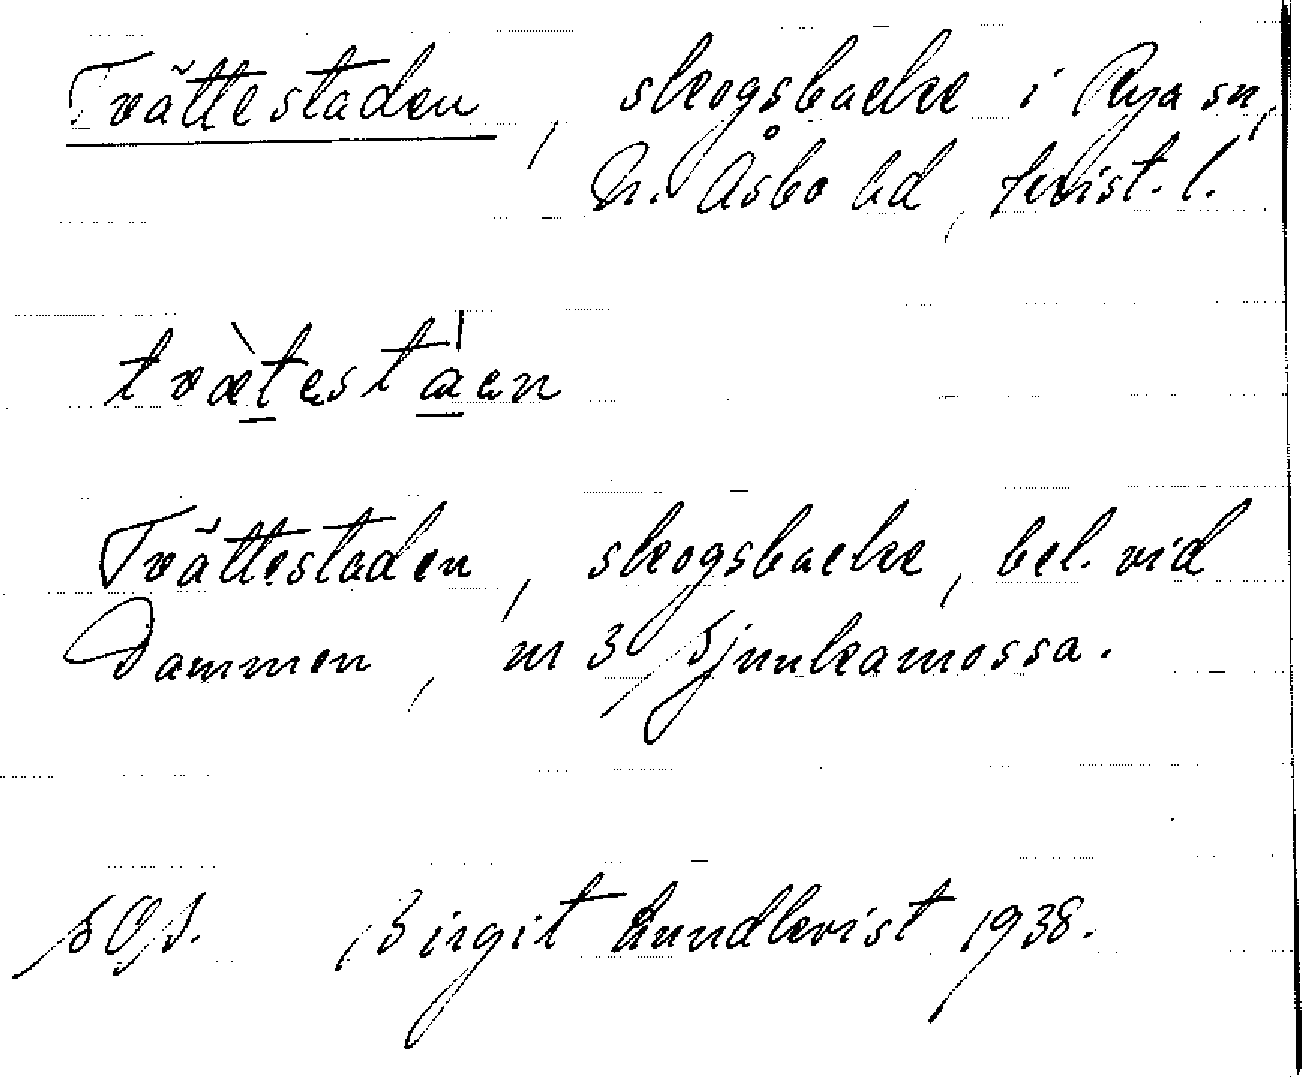 Tvättestaden, skogsbacke i Rya sn,
N. Åsbo hd, krist. l.
tvætestaen
Tvättestaden, skogsbacke, bel. vid
Dammen, nr 3 Sjunkamossa.
SOJ. Birgit Lundkvist 1938.